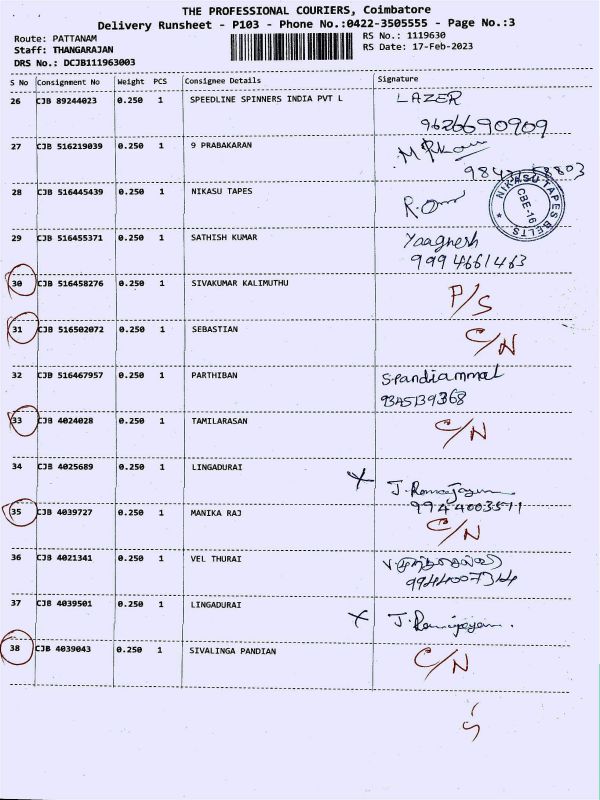 THE PROFESSIONAL COURIERS, Coimbatore
Delivery Runsheet - P103 - Phone No.:0422-3505555 - Page No.:3
Route: PATTANAM
RS No.: 1119630
Staff: THANGARAJAN
RS Date: 17-Feb-2023
DRS No.: DCJB111963003
S No Consignment No Weight PCS Consignee Details Signature
26 CJB 89244023 0.250 1 SPEEDLINE SPINNERS INDIA PVT L LAZER
9626690909
27 CJB 516219039 0.250 1 9 PRABAKARAN
28 CJB 516445439 0.250 1 NIKASU TAPES
NIKASU TAPES BELTS
CBE-16
29 CJB 516455371 0.250 1 SATHISH KUMAR Yaagnesh
9994661463
30 CJB 516458276 0.250 1 SIVAKUMAR KALIMUTHU P/S
31 CJB 516502072 0.250 1 SEBASTIAN C/N
32 CJB 516467957 0.250 1 PARTHIBAN S.Pandiammal
9345139368
33 CJB 4024028 0.250 1 TAMILARASAN C/N
34 CJB 4025689 0.250 1 LINGADURAI X
9944003511
35 CJB 4039727 0.250 1 MANIKA RAJ C/N
36 CJB 4021341 0.250 1 VEL THURAI
9944007344
37 CJB 4039501 0.250 1 LINGADURAI X
38 CJB 4039043 0.250 1 SIVALINGA PANDIAN C/N